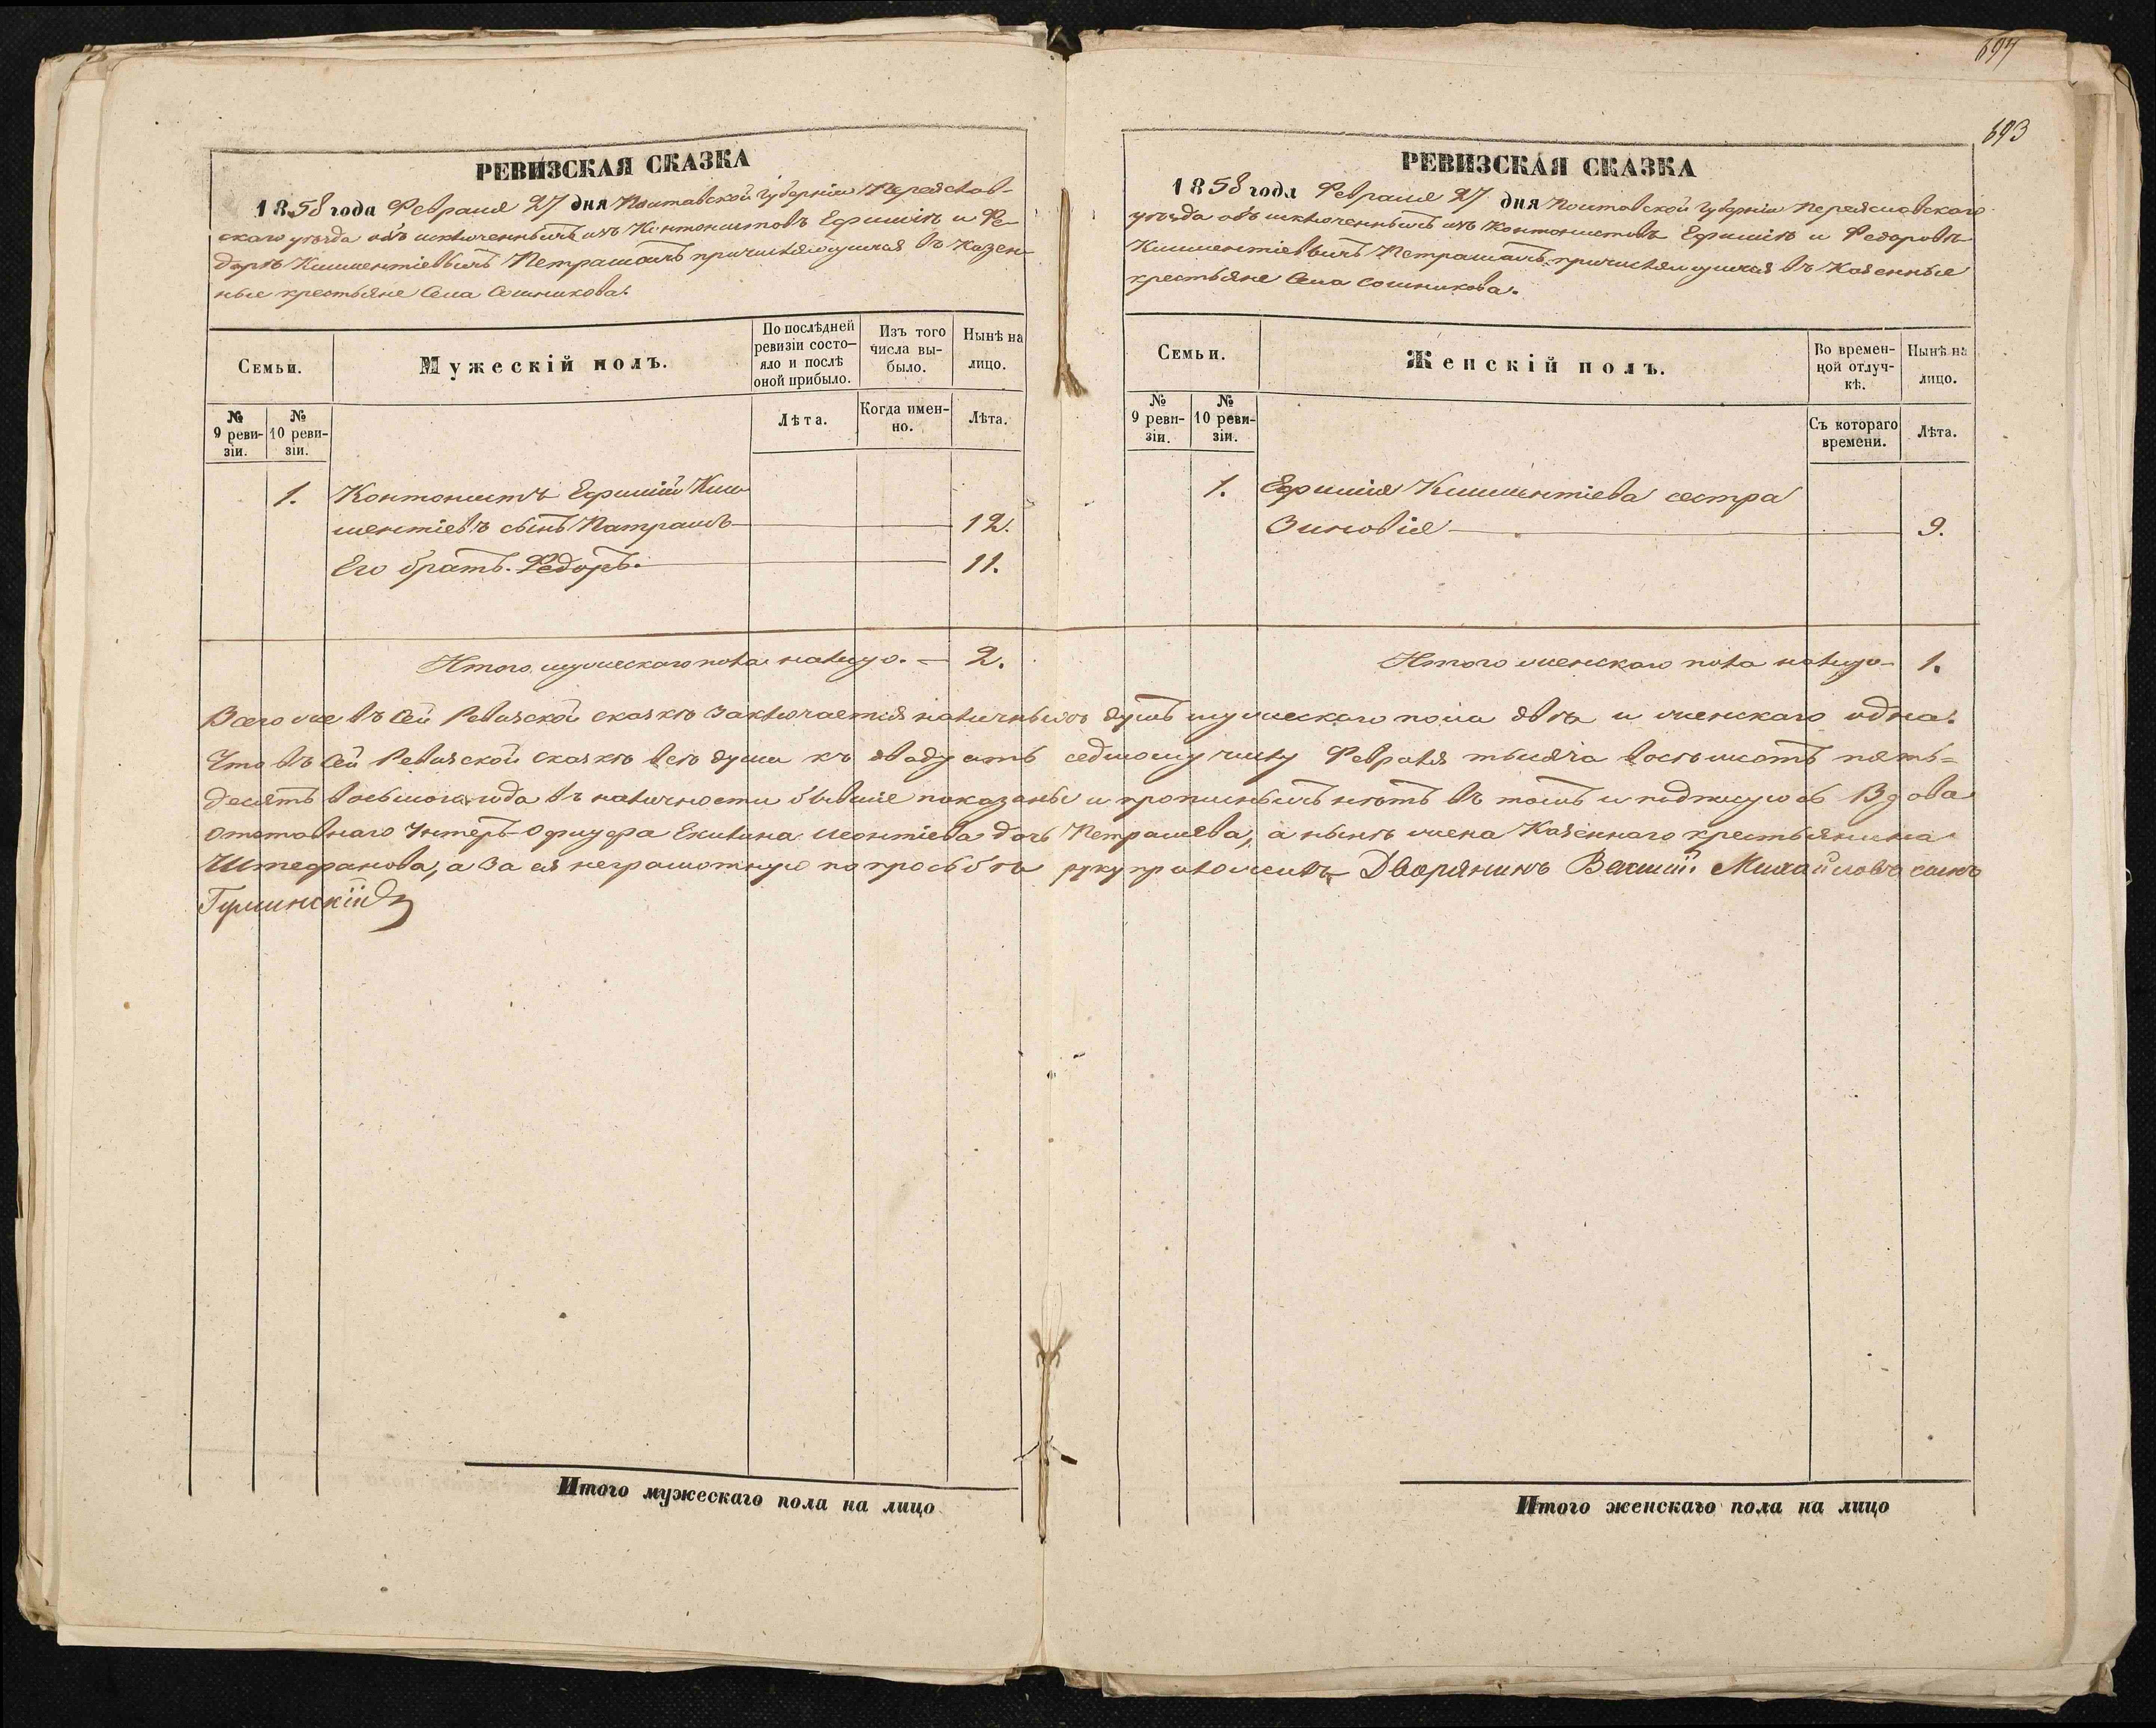 694
693
РЕВИЗСКАЯ СКАЗКА
1858 года Февраля 27 дня Полтавской Губерніи Переяслав-
скаго уѣзда объ исключенныхъ изъ Контонистовъ Ефиміѣ и Ѳе-
дорѣ Климентіевыхъ Петрашахъ причисляющихся въ Казен-
ные крестьяне Села Сошникова.
Семьи.
Мужескій полъ.
По послѣдней ревизіи состо-яло и послѣ оной прибыло.
Изъ того числа вы-было.
Нынѣ на лицо.
№ 9 реви-зіи.
№ 10 реви-зіи.
Лѣта.
Когда имен-но.
Лѣта.
1. Контонистъ Ефимій Кли
ментіевъ сынъ Петрашъ 12.
Его братъ Ѳедоръ. 11.
Итого мужескаго пола налицо. — 2.
РЕВИЗСКАЯ СКАЗКА
1858 года Февраля 27 дня Полтавской Губерніи Переяславскаго
уѣзда объ исключенныхъ изъ Контонистовъ Ефиміѣ и Ѳедорѣ
Климентіевыхъ Петрашахъ причисляющихся въ Казенные
крестьяне Села Сошникова.
Семьи.
Женскій полъ.
Во времен-ной отлуч-кѣ.
Нынѣ на лицо.
№ 9 реви-зіи.
№ 10 реви-зіи.
Съ котораго времени.
Лѣта.
1. Ефимія Климентіева сестра
Зиновія 9.
Итого женскаго пола налицо — 1.
Всего же въ сей Ревизской сказкѣ заключается наличныхъ душъ мужескаго пола двѣ и женскаго одна.
Что въ сей Ревизской сказкѣ всѣ души къ двадцать седмому числу Февраля тысяча восьмсотъ пять=
десятъ восьмого года въ наличности бывшіе показаны и прописныхъ нѣтъ въ томъ и подписуюсь Вдова
отставнаго Унтеръ-Офицера Екилина Леонтіева дочь Петрашева, а нынѣ жена Казеннаго крестьянина
Штефанова, а за ея неграмотную по просьбѣ руку приложилъ Дворянинъ Василій Михайловъ сынъ
Гулинскій
Итого мужескаго пола на лицо
Итого женскаго пола на лицо